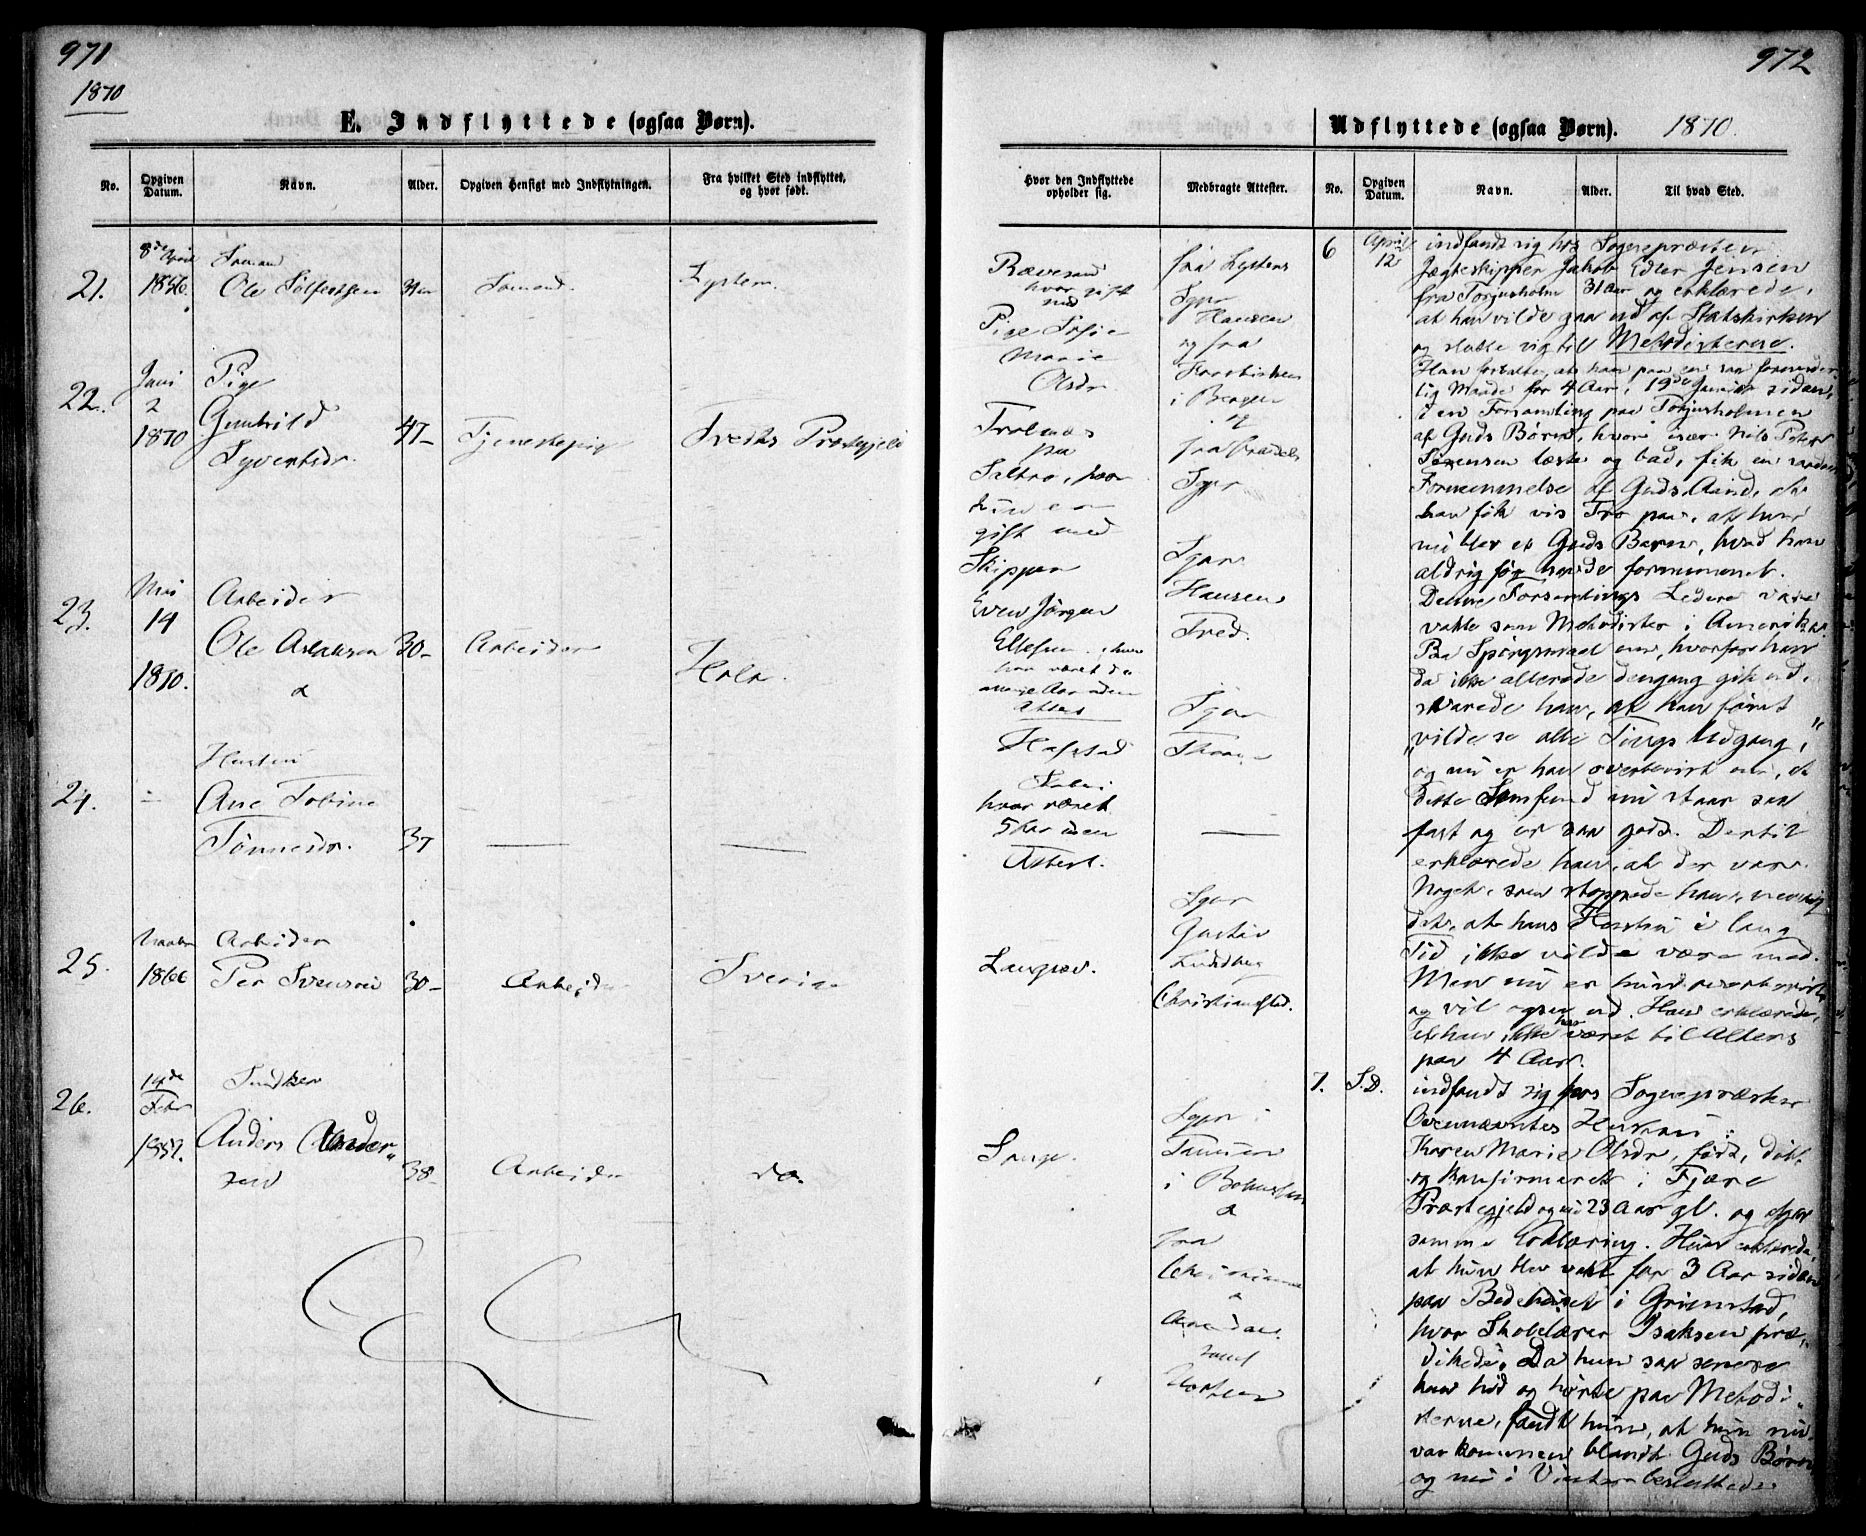 971
1870
E. Indflyttede (ogsaa Børn).
No.
Opgiven Datum.
Navn.
Alder.
Opgiven Hensigt med Indflytningen.
Fra hvilket Sted indflyttet, og hvor født.
21.
8de April
1856.
Sømand
Ole
Sømand.
22.
Juni
2
1870
Pige
Gunhild
Syvertsdr.
47-
Tjenestepige
Tveds Præstegjeld
23.
Mai
14
1870.
Arbeider
Ole Aslaksen
30-
Arbeider
Holt.
24.
Hustru
Ane Tobine
Tønnesdr.
37
25.
1866
Arbeider
Per Svensen
30-
Arbeider
Sverige
26.
14de
Febr
1857.
Anders Ander-
sen
38-
Arbeider
do.
972
Udflyttede (ogsaa Børn). 1870.
Hvor den Indflyttede opholder sig.
Medbragte Attester.
No.
Opgiven Datum.
Navn.
Alder.
Til hvad Sted.
Rævesand
hvor gift
med
Pige Sofie
Marie
Olsdr
paa
Saltrø, hvor
hun er
gift med
Skipper
Even Jørgen
Ellefsen
har været
Attest
Hafstad
hvor været
5 Aar uden
Attest.
Langsæv.
fra
Sgpr
Hansen
og fra
i Bergen
og
Sgpr
Sgpr
Hansen
Tved.
Sgpr
Sgpr
Gustav
Lindberg
Christianstad.
Sgpr i
i
fra
Arendal
samt
6
April
12
indfandt sig hos Sognepræsten
Jægteskipper Jakob Edler Jensen
fra Torjusholm 31 Aar og erklærede,
at han vilde gaa ud af Statskirken
og slutte sig til Metodisterne.
Han fortalte, at han paa en saa forunder-
lig Maade for 4 Aar, 19de Juni siden,
i en Forsamling paa Torjusholmen
af Guds Børn, hvor især Nils Peter
Sørensen læste og bad, fik en saadan
Fornemmelse af Guds Aand, at
han fik vis Tro paa, at han
nu blev et Guds Barn, hvad han
aldrig før havde fornummet.
Denne Forsamlings Ledere vare
vakte som Metodister i Amerika.
Paa Spørgsmaal om, hvorfor han
da ikke allerede dengang gik ud,
svarede han, at han først
"vilde se alle Tings Udgang,"
og nu er han overbevist om, at
dette Samfund nu staar saa
fast og er saa godt. Dertil
erklærede han, at der var
Noget, som stoppede ham, nemlig
det, at hans Hustru i lang
Tid ikke vilde være med.
Men nu er hun overbevist
og vil ogsaa ud. Han erklærede,
at han ikke har været til Alters
paa 4 Aar.
7. S.D.
indfandt sig hos Sognepræsten
Ovennævntes Hustru:
Karen Marie Olsdr, født, døbt
og konfirmeret i Fjære
Præstegjeld og nu 23 Aar gl. og afgav
samme Erklæring. Hun erklærede,
at hun blev vakt for 3 Aar siden
paa Bedehuset i Grimstad,
hvor Skolelærer Isaksen præ-
dikede. Da hun saa senere
kom hid og hørte paa Metodi-
sterne, fandt hun, at hun nu
var kommen blandt Guds Børn
og nu i Vinter besluttede